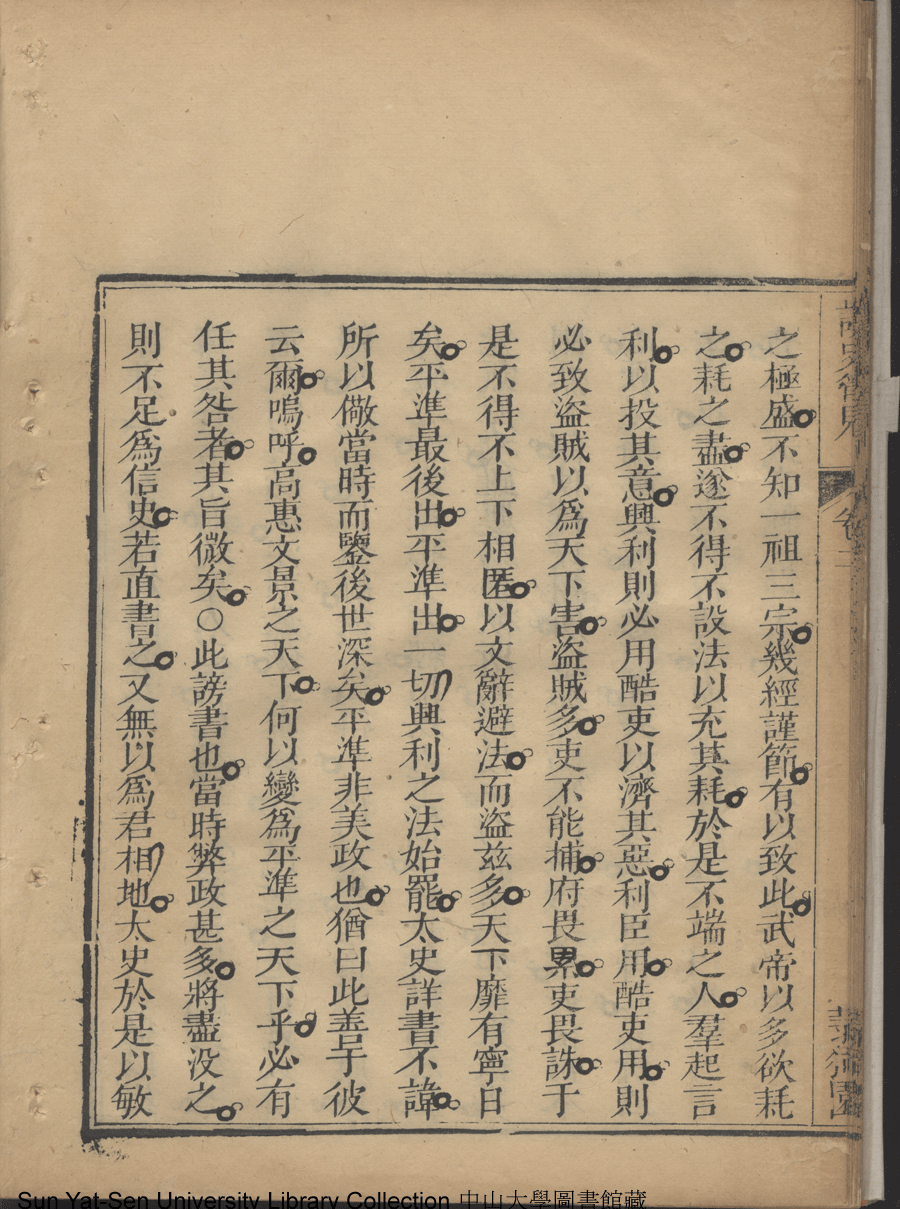 之極盛不知一祖三宗幾經謹節有以致此武帝以多欲耗
之耗之盡遂不得不設法以充其耗於是不端之人羣起言
利以投其意興利則必用酷吏以濟其惡利臣用酷吏用則
必致盜賊以爲天下害盜賊多吏不能捕府畏累吏畏誅于
是不得不上下相匿以文辭避法而盜兹多天下靡有寧日
矣平準最後出平準出一切興利之法始罷太史詳書不諱
所以儆當時而鑒後世深矣平準非美政也猶曰此善乎彼
云爾嗚呼高惠文景之天下何以變爲平準之天下乎必有
任其咎者其旨微矣○此謗書也當時弊政甚多將盡没之
則不足爲信史若直書之又無以爲君相地太史於是以敏
卷二
Sun Yat-Sen University Library Collection 中山大學圖書館藏